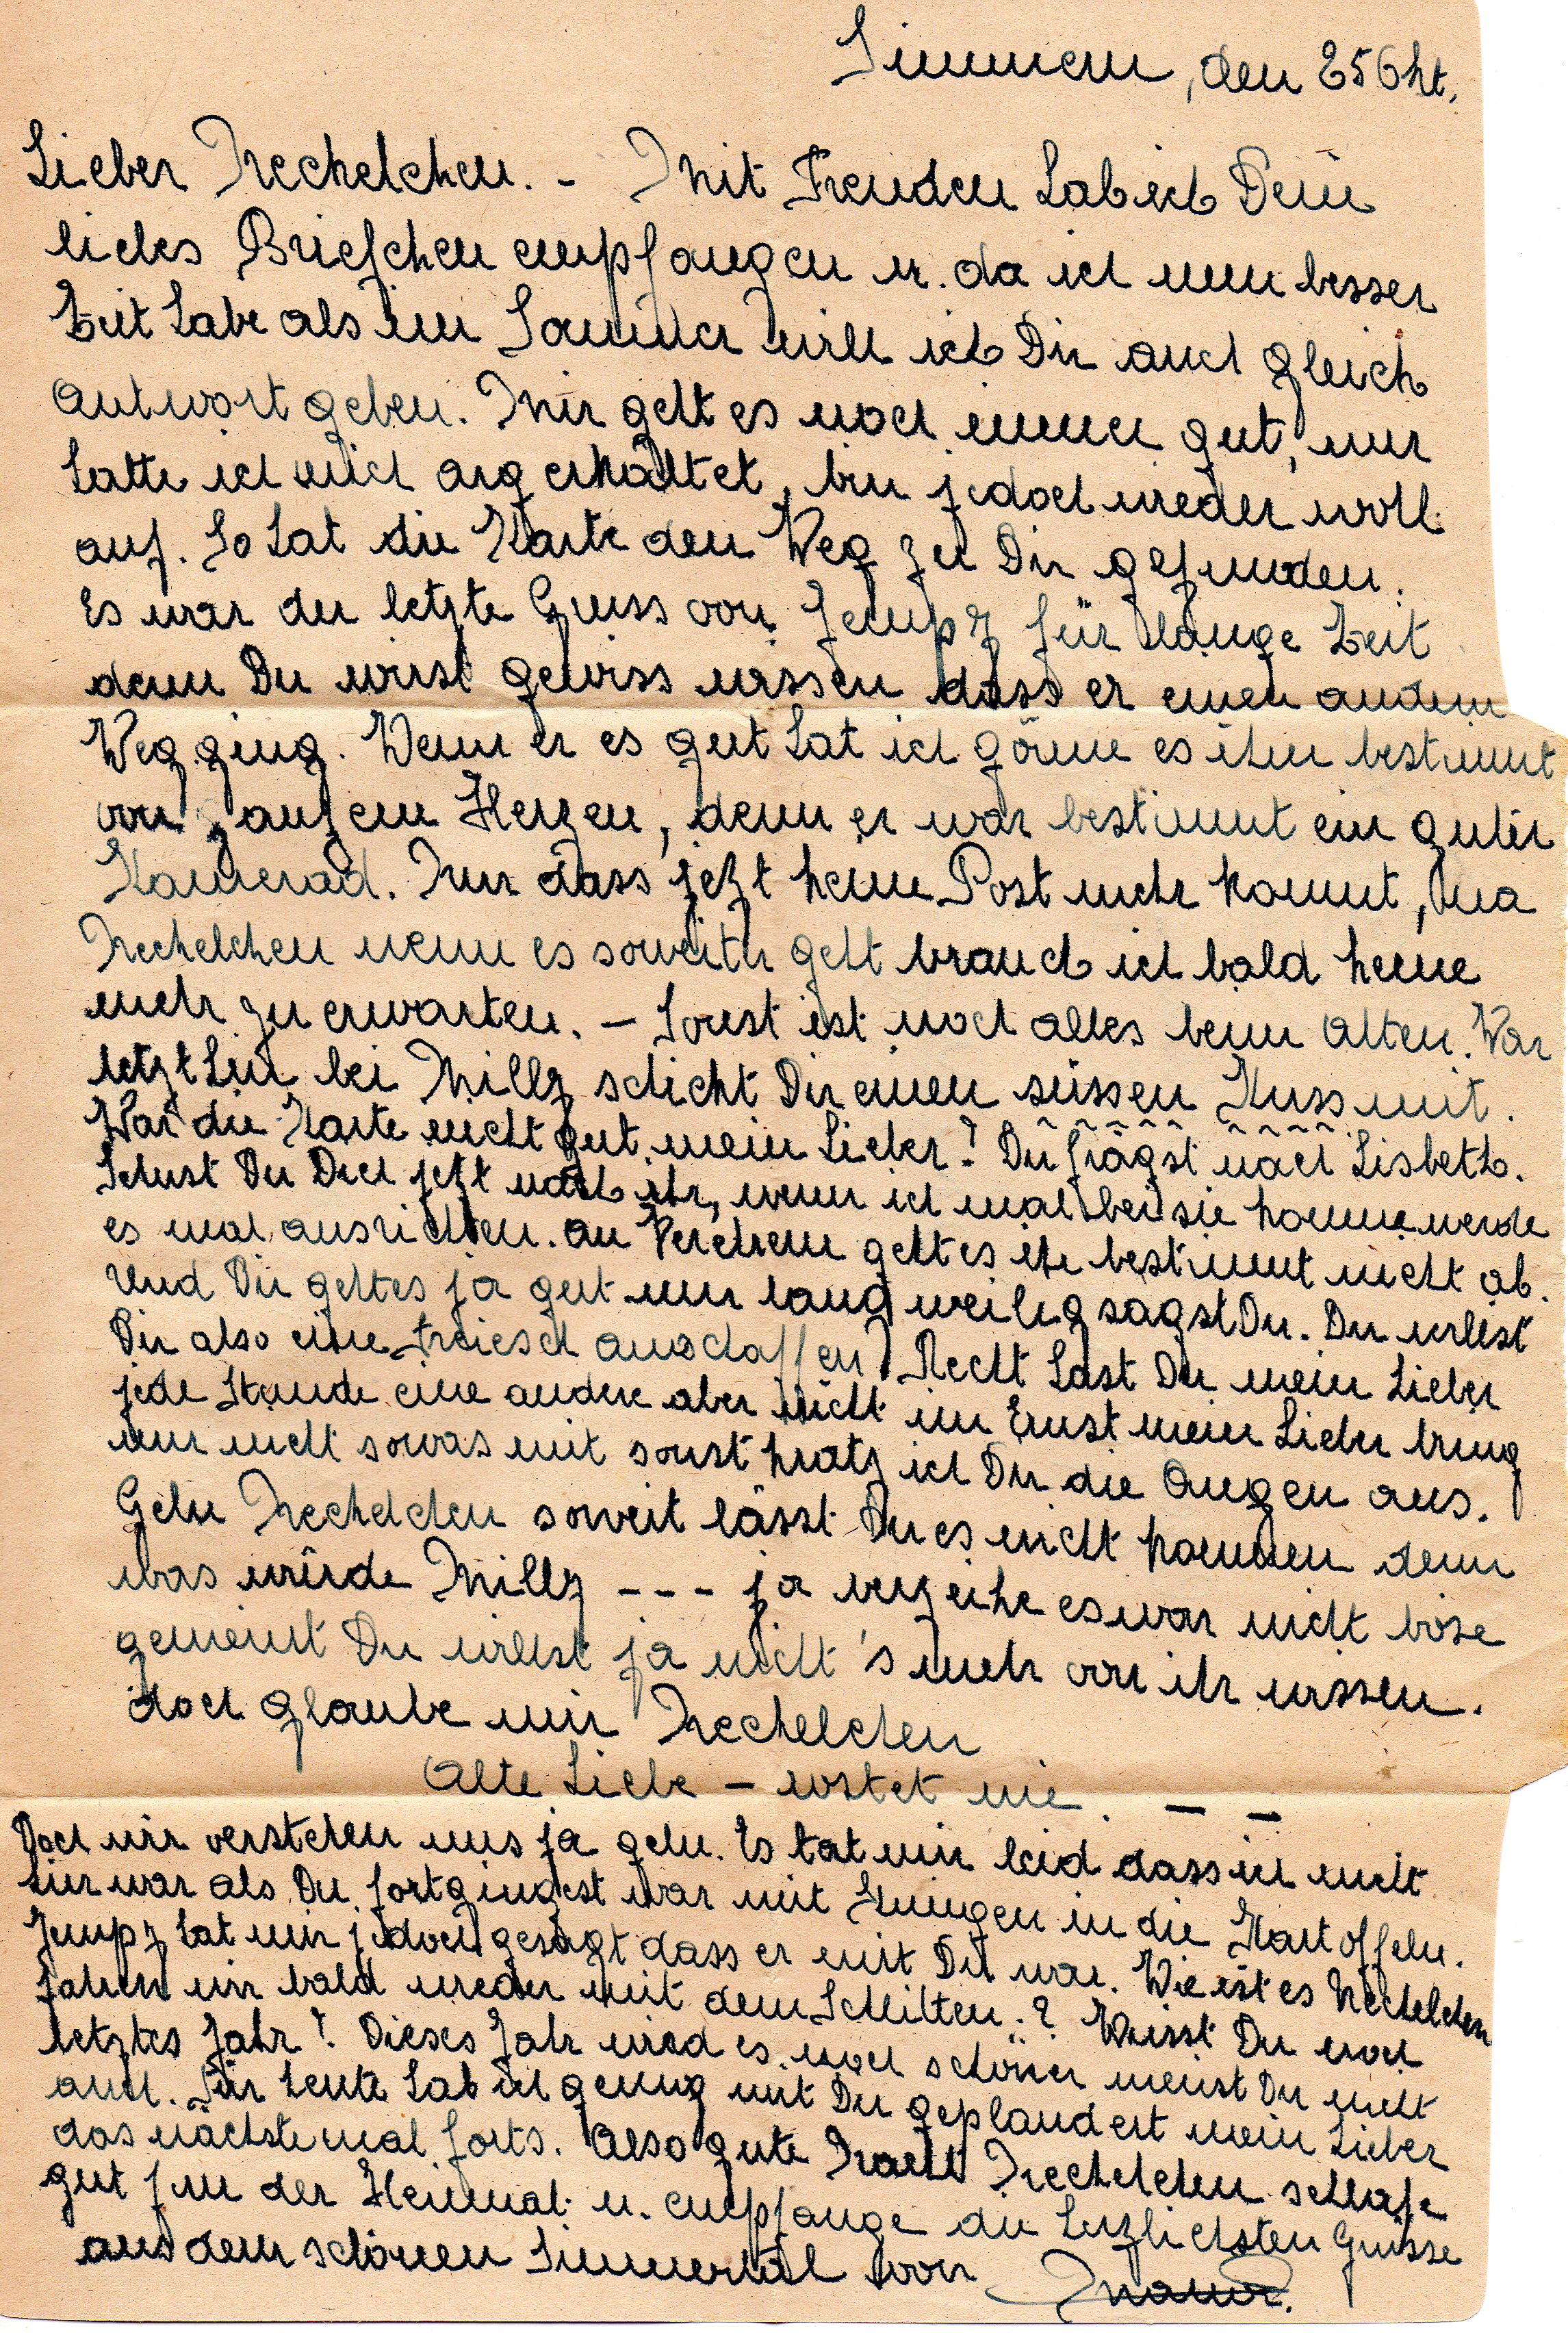 Simmern, den 25 Okt.
Lieber Nechelchen. - Mit Freuden hab ich Dein
liebes Briefchen empfangen u. da ich nun besser
Zeit habe als im Sommer will ich Dir auch gleich
Antwort geben. Mir geht es noch immer gut, nur
hatte ich mich arg erkältet, bin jedoch wieder wohl
auf. So hat die Karte den Weg zu Dir gefunden.
Es war der letzte Gruss von Jempy für lange Zeit
denn Du wirst gewiss wissen dass er einen andern
Weg ging. Wenn er es gut hat ich gönne es ihm bestimmt
von ganzem Herzen, denn er war bestimmt ein guter
Kamerad. Nur dass jetzt keine Post mehr kommt, Na
Nechelchen wenn es soweiter geht brauch ich bald keine
mehr zu erwarten. - Sonst ist noch alles beim Alten. War
letzthin bei Milly schickt Dir einen süssen Kuss mit.
War die Karte nicht gut mein Lieber? Du frägst nach Lisbeth.
Sehnst Du Dich jetzt nach ihr, wenn ich mal bei sie komme werde
es mal ausrichten. An Verehrern geht es ihr bestimmt nicht ab.
Und Dir geht es ja gut nur langweilig sagst Du. Du willst
Dir also eine anschaffen? Recht hast Du mein Lieber
jede Stunde eine andere aber nicht im Ernst mein Lieber bring
nur nicht sowas mit sonst kratz ich Dir die Augen aus.
Gelu Nechelchen soweit lässt Du es nicht kommen denn
was würde Milly - - - ja verzeihe es war nicht böse
gemeint Du willst ja nicht's mehr von ihr wissen.
doch glaube mir Nechelchen
Alte Liebe - rostet nie. - -
Doch wir verstehen uns ja gelu. Es tat mir leid dass ich nicht
hier war als Du fortgingest war mit in die Kartoffeln.
Jempy hat mir jedoch gesagt dass er mit Dir war. Wie ist es Nechelchen
fahren wir bald wieder mit dem Schlitten.? Weisst Du noch
letztes Jahr! Dieses Jahr wird es noch schöner meinst Du nicht
auch. Für heute hab ich genug mit Dir geplaudert mein Lieber
das nächstemal forts. Also gute Nacht Nechelchen schlafe
gut fur der Heimat u. empfange die herzlichsten Grüsse
aus dem schönen Simmertal von